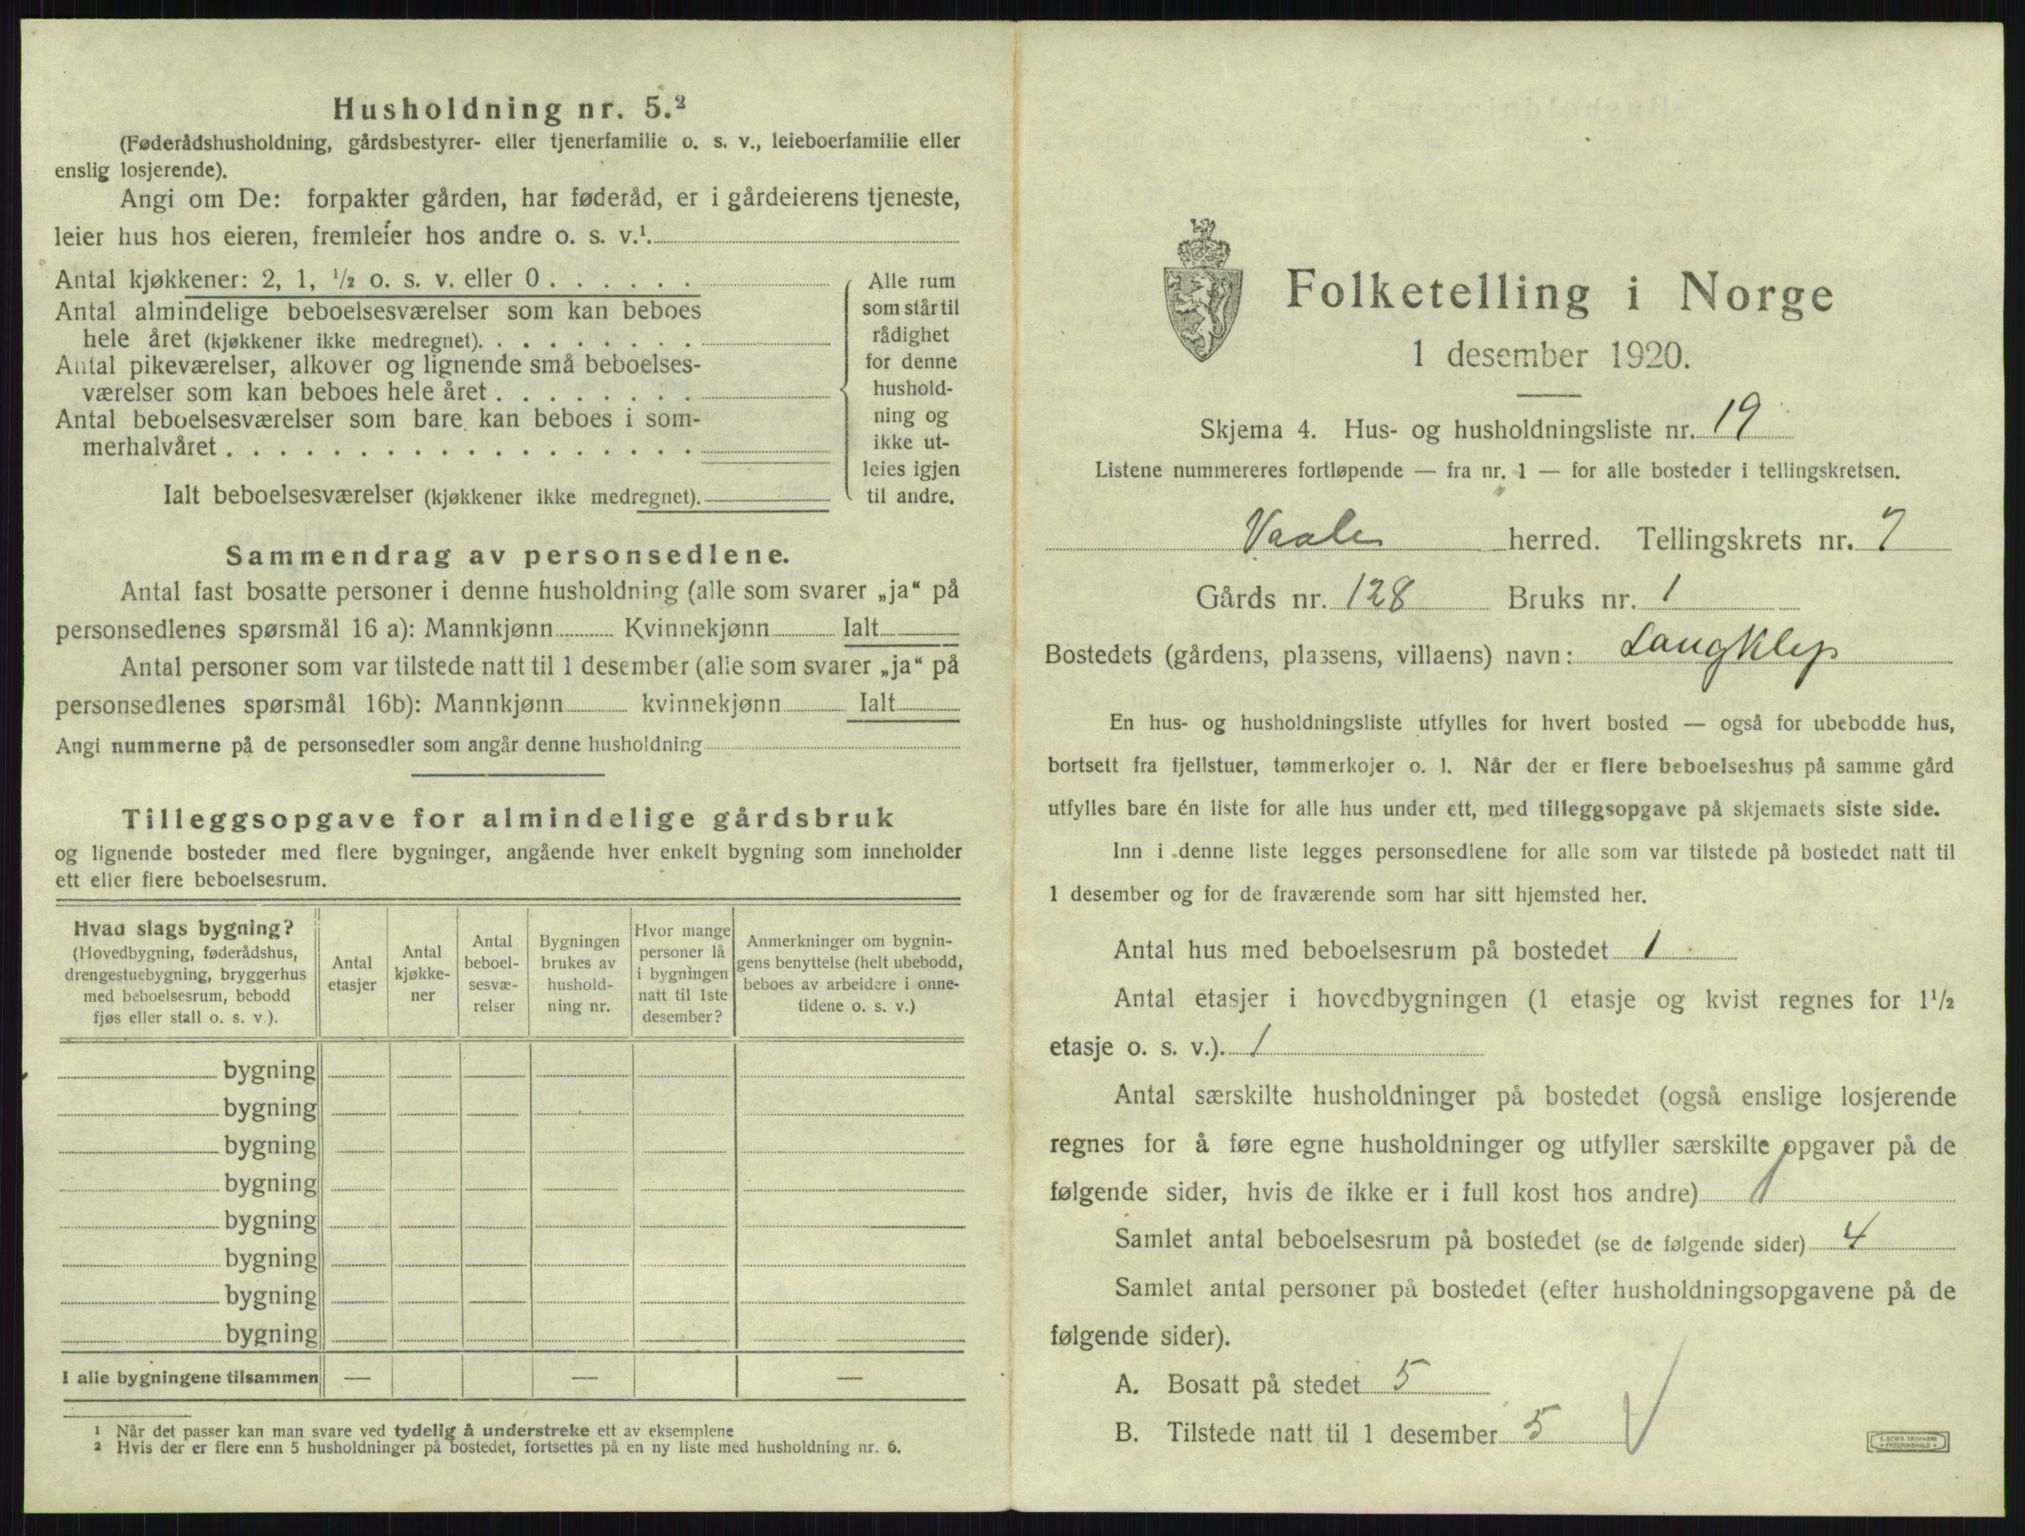 Husholdning nr. 5.²
(Føderådshusholdning, gårdsbestyrer- eller tjenerfamilie o. s. v., leieboerfamilie eller
enslig losjerende).
Angi om De: forpakter gården, har føderåd, er i gårdeierens tjeneste,
leier hus hos eieren, fremleier hos andre o. s. v.¹.
Antal kjøkkener: 2, 1, ¹/₂ o. s. v. eller 0 . . . . . .
Antal almindelige beboelsesværelser som kan beboes
hele året (kjøkkener ikke medregnet). . . . . . . . .
Antal pikeværelser, alkover og lignende små beboelses-
værelser som kan beboes hele året . . . . . . . .
Antal beboelsesværelser som bare kan beboes i som-
merhalvåret . . . . . . . . . . . . . . . . . .
Ialt beboelsesværelser (kjøkkener ikke medregnet).
Alle rum
som står til
rådighet
for denne
hushold-
ning og
ikke ut-
leies igjen
til andre.
Sammendrag av personsedlene.
Antal fast bosatte personer i denne husholdning (alle som svarer „ja“ på
personsedlenes spørsmål 16 a): Mannkjønn Kvinnekjønn Ialt
Antal personer som var tilstede natt til 1 desember (alle som svarer „ja“ på
personsedlenes spørsmål 16b): Mannkjønn kvinnekjønn Ialt
Angi nummerne på de personsedler som angår denne husholdning
Tilleggsopgave for almindelige gårdsbruk
og lignende bosteder med flere bygninger, angående hver enkelt bygning som inneholder
ett eller flere beboelsesrum.
Hvad slags bygning?
(Hovedbygning, føderådshus,
drengestuebygning, bryggerhus
med beboelsesrum, bebodd
fjøs eller stall o. s. v.).
Antal
etasjer
Antal
kjøkke-
ner
Antal
beboel-
sesvæ-
relser
Bygningen
brukes av
hushold-
ning nr.
Hvor mange
personer lå
i bygningen
natt til 1ste
desember?
Anmerkninger om bygnin-
gens benyttelse (helt ubebodd,
beboes av arbeidere i onne-
tidene o. s. v.)
bygning
bygning
bygning
bygning
bygning
bygning
bygning
bygning
I alle bygningene tilsammen — — —
¹ Når det passer kan man svare ved tydelig å understreke ett av eksemplene
² Hvis der er flere enn 5 husholdninger på bostedet, fortsettes på en ny liste med husholdning nr. 6.
Folketelling i Norge
1 desember 1920.
Skjema 4. Hus- og husholdningsliste nr. 19
Listene nummereres fortløpende — fra nr. 1 — for alle bosteder i tellingskretsen.
Vaale herred. Tellingskrets nr. 7
Gårds nr. 128 Bruks nr. 1
Bostedets (gårdens, plassens, villaens) navn: Langklep
En hus- og husholdningsliste utfylles for hvert bosted — også for ubebodde hus,
bortsett fra fjellstuer, tømmerkojer o. l. Når der er flere beboelseshus på samme gård
utfylles bare én liste for alle hus under ett, med tilleggsopgave på skjemaets siste side.
Inn i denne liste legges personsedlene for alle som var tilstede på bostedet natt til
1 desember og for de fraværende som har sitt hjemsted her.
Antal hus med beboelsesrum på bostedet 1
Antal etasjer i hovedbygningen (1 etasje og kvist regnes for 1¹/₂
etasje o. s. v.). 1
Antal særskilte husholdninger på bostedet (også enslige losjerende
regnes for å føre egne husholdninger og utfyller særskilte opgaver på de
følgende sider, hvis de ikke er i full kost hos andre) 1
Samlet antal beboelsesrum på bostedet (se de følgende sider) 4
Samlet antal personer på bostedet (efter husholdningsopgavene på de
følgende sider).
A. Bosatt på stedet 5
B. Tilstede natt til 1 desember 5